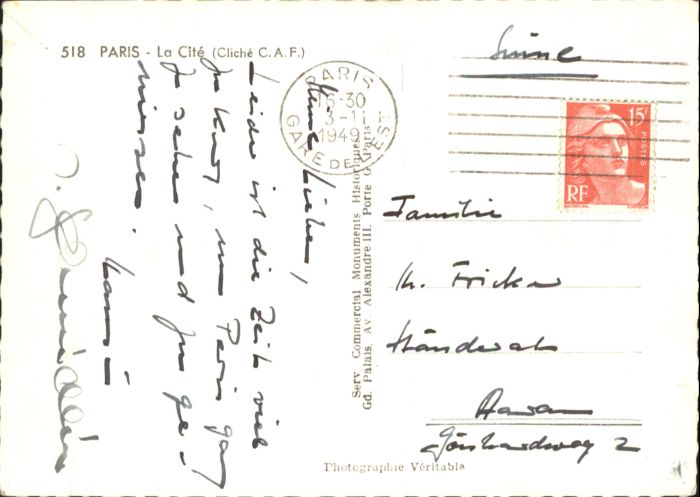 518 PARIS - La Cité (Cliché C. A. F.)
PARIS
16-30
3-11
1949
GARE DE L'EST
15F
POSTES
RF
Meine Lieben,
Leider ist die Zeit viel
zu kurz, um Paris ganz
zu sehen und zu ge-
niessen.
Serv Commercial Monuments Historiques
Gd. Palais, Av. Alexandre III, Porte G Paris
Suisse
Familie
K. Fricker
Aarau
2
Photographie Véritable